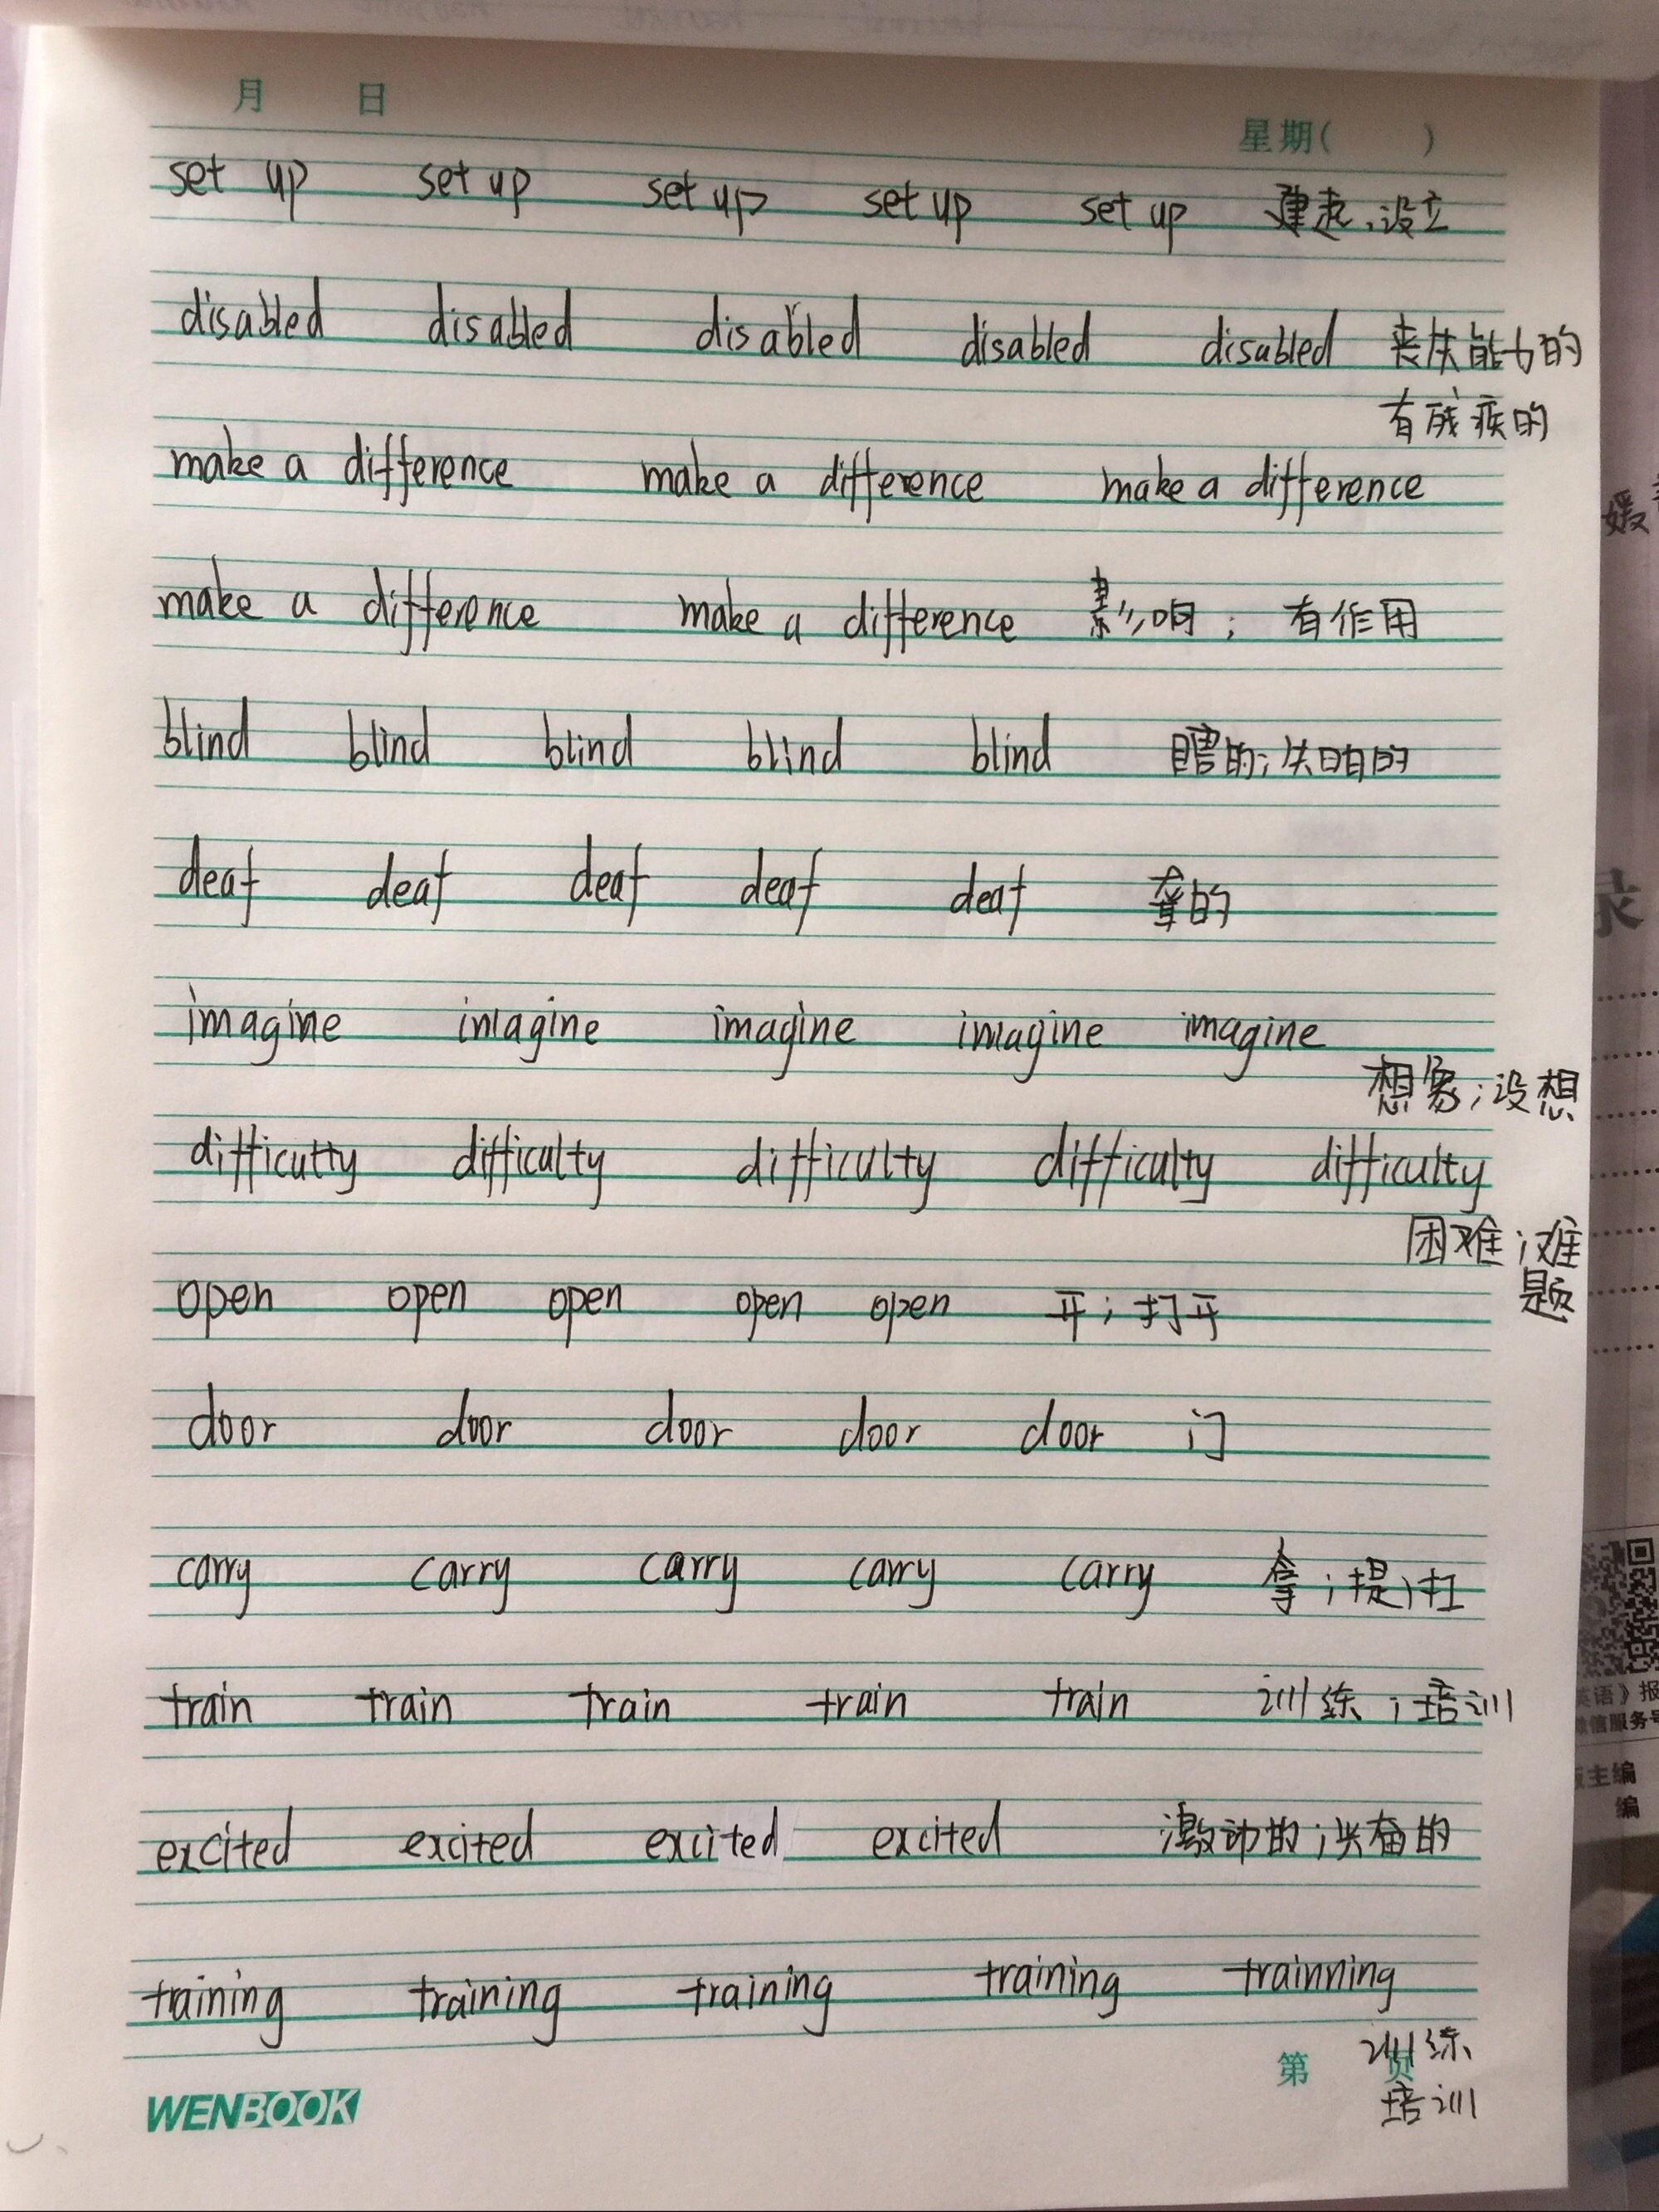 月 日 星期( )
set up set up set up set up set up 建起,设立
disabled disabled disabled disabled disabled 丧失能力的
有残疾的
make a difference make a difference make a difference
make a difference make a difference 影响; 有作用
blind blind blind blind blind 瞎的;失明的
deaf deaf deaf deaf deaf 聋的
imagine imagine imagine imagine imagine
想象;设想
difficutty difficulty difficulty difficulty difficulty
困难;难
题
open open open open open 开;打开
door door door door door 门
carry carry carry carry carry 拿;提;扛
train train train train train 训练;培训
excited excited excited excited 激动的;兴奋的
training training training training trainning
训练
第 页
培训
WENBOOK
媛
录
英语》报
微信服务号
版主编
编